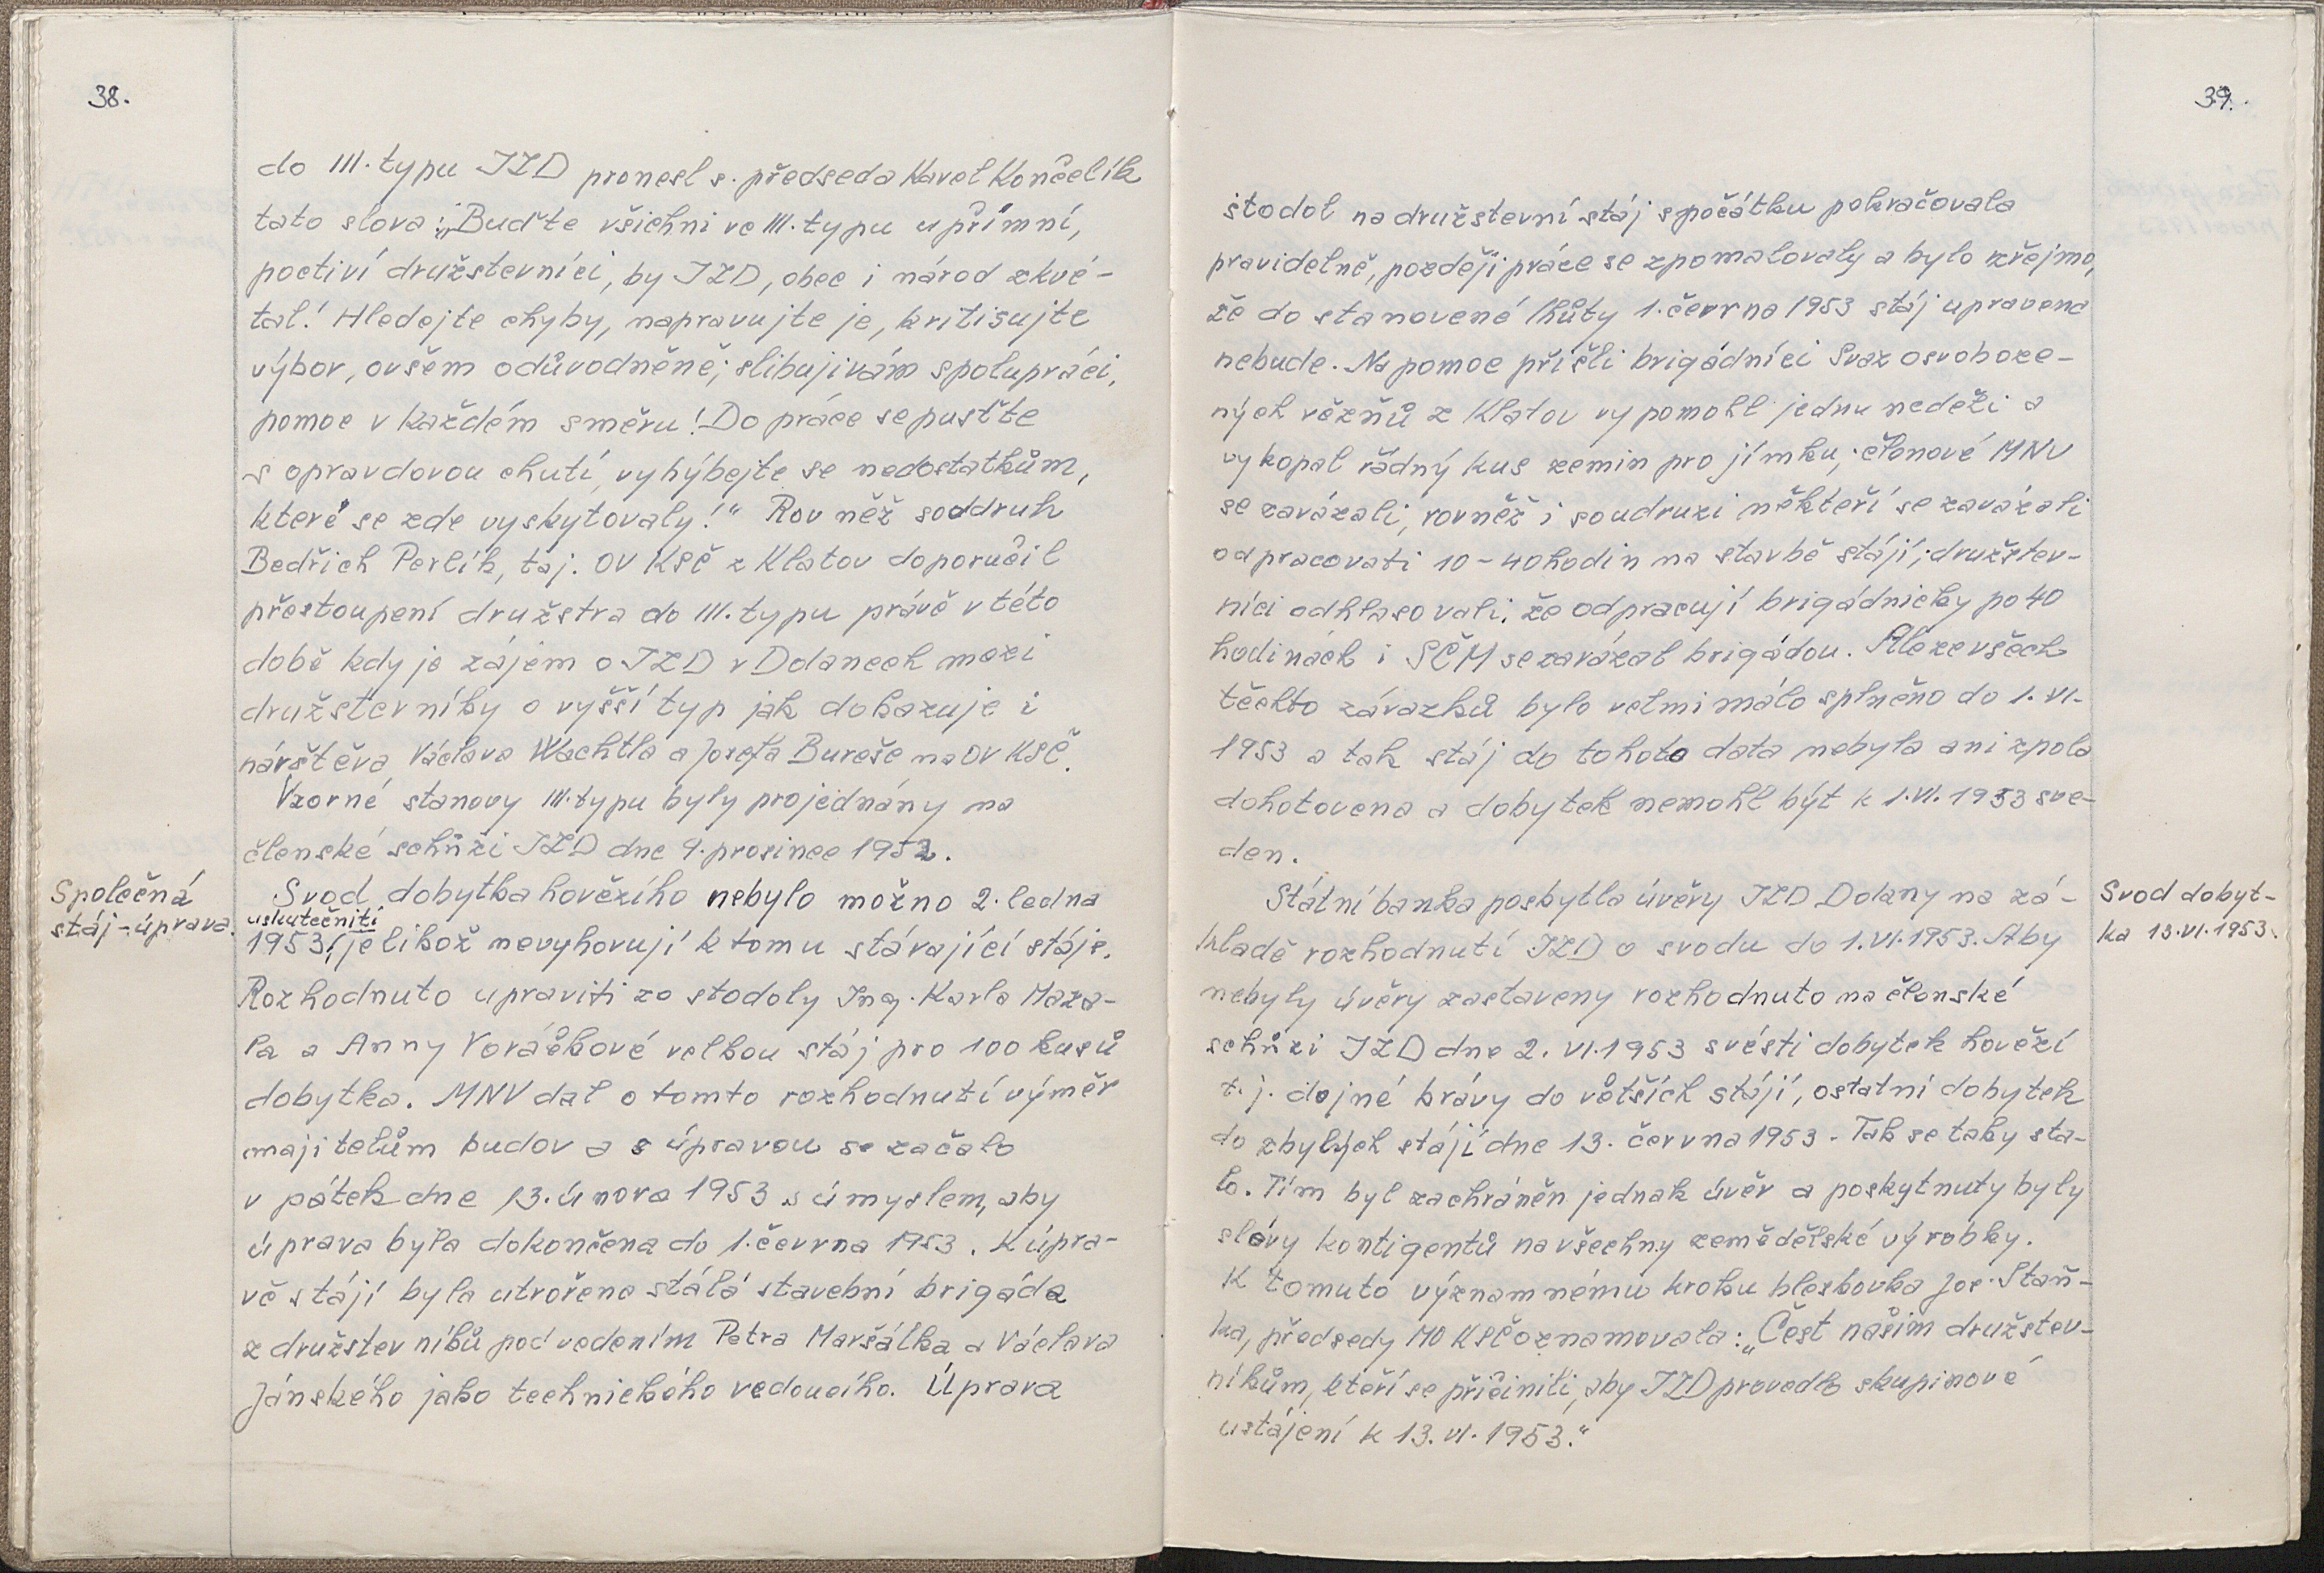 38.
do III. typu JZD pronesl s. předseda Karel Končelík
tato slova: „Buďte všichni ve III. typu upřímní,
poctiví družstevníci, by JZD, obec i národ zkvé-
tal! Hledejte chyby, napravujte je, kritisujte
výbor, ovšem odůvodněně; slibuji vám spolupráci,
pomoc v každém směru! Do práce se pusťte
s opravdovou chutí, vyhýbejte se nedostatkům,
které se zde vyskytovaly!" Rovněž soddruh
Bedřich Perlík, taj. OV KSČ z Klatov doporučil
přestoupení družstva do III. typu právě v této
době kdy je zájem o JZD v Dolanech mezi
družstevníky o vyšší typ jak dokazuje i
návštěva Václava Wachtla a Josefa Bureše na OV KSČ.
Vzorné stanovy III. typu byly projednány na
členské schůzi JZD dne 9. prosince 1952.
Společná
stáj - úprava.
Svod dobytka hovězího nebylo možno 2. ledna
uskutečniti
1953, jelikož nevyhovují k tomu stávající stáje.
Rozhodnuto upraviti ze stodoly Ing. Karla Maza-
la a Anny Voráčkové velkou stáj pro 100 kusů
dobytka. MNV dal o tomto rozhodnutí výměr
majitelům budov a s úpravou se začalo
v pátek dne 13. února 1953 s úmyslem, aby
úprava byla dokončena do 1. června 1953. K úpra-
vě stájí byla utvořena stálá stavební brigáda
z družstevníků pod vedením Petra Maršálka a Václava
Jánského jako technického vedoucího. Úprava
39.
stodol na družstevní stáj spočátku pokračovala
pravidelně, později práce se zpomalovaly a bylo zřejmo,
že do stanovené lhůty 1. června 1953 stáj upravena
nebude. Na pomoc přišli brigádníci Svaz osvoboze-
ných vězňů z Klatov vypomohl jednu neděli a
vykopal řádný kus zemin pro jímku; členové MNV
se zavázali, rovněž i soudruzi někteří se zavázali
odpracovati 10-40 hodin na stavbě stájí; družstev-
níci odhlasovali, že odpracují brigádnicky po 40
hodinách i SČM se zavázal brigádou. Ale ze všech
těchto závazků bylo velmi málo splněno do 1. VI.
1953 a tak stáj do tohoto data nebyla ani zpola
dohotovena a dobytek nemohl být k 1. VI. 1953 sve-
den.
Státní banka poskytla úvěry JZD Dolany na zá-
Svod dobyt-
ka 13. VI. 1953.
kladě rozhodnutí JZD o svodu do 1. VI. 1953. Aby
nebyly úvěry zastaveny rozhodnuto na členské
schůzi JZD dne 2. VI. 1953 svésti dobytek hovězí
t. j. dojné krávy do větších stájí, ostatní dobytek
do zbylých stájí dne 13. června 1953. Tak se taky sta-
lo. Tím byl zachráněn jednak úvěr a poskytnuty byly
slevy kontigentů na všechny zemědělské výrobky.
K tomuto významnému kroku bleskovka Jos. Staň-
ka, předsedy MO KSČ oznamovala: „Čest našim družstev-
níkům, kteří se přičinili, aby JZD provedlo skupinové
ustájení k 13. VI. 1953."